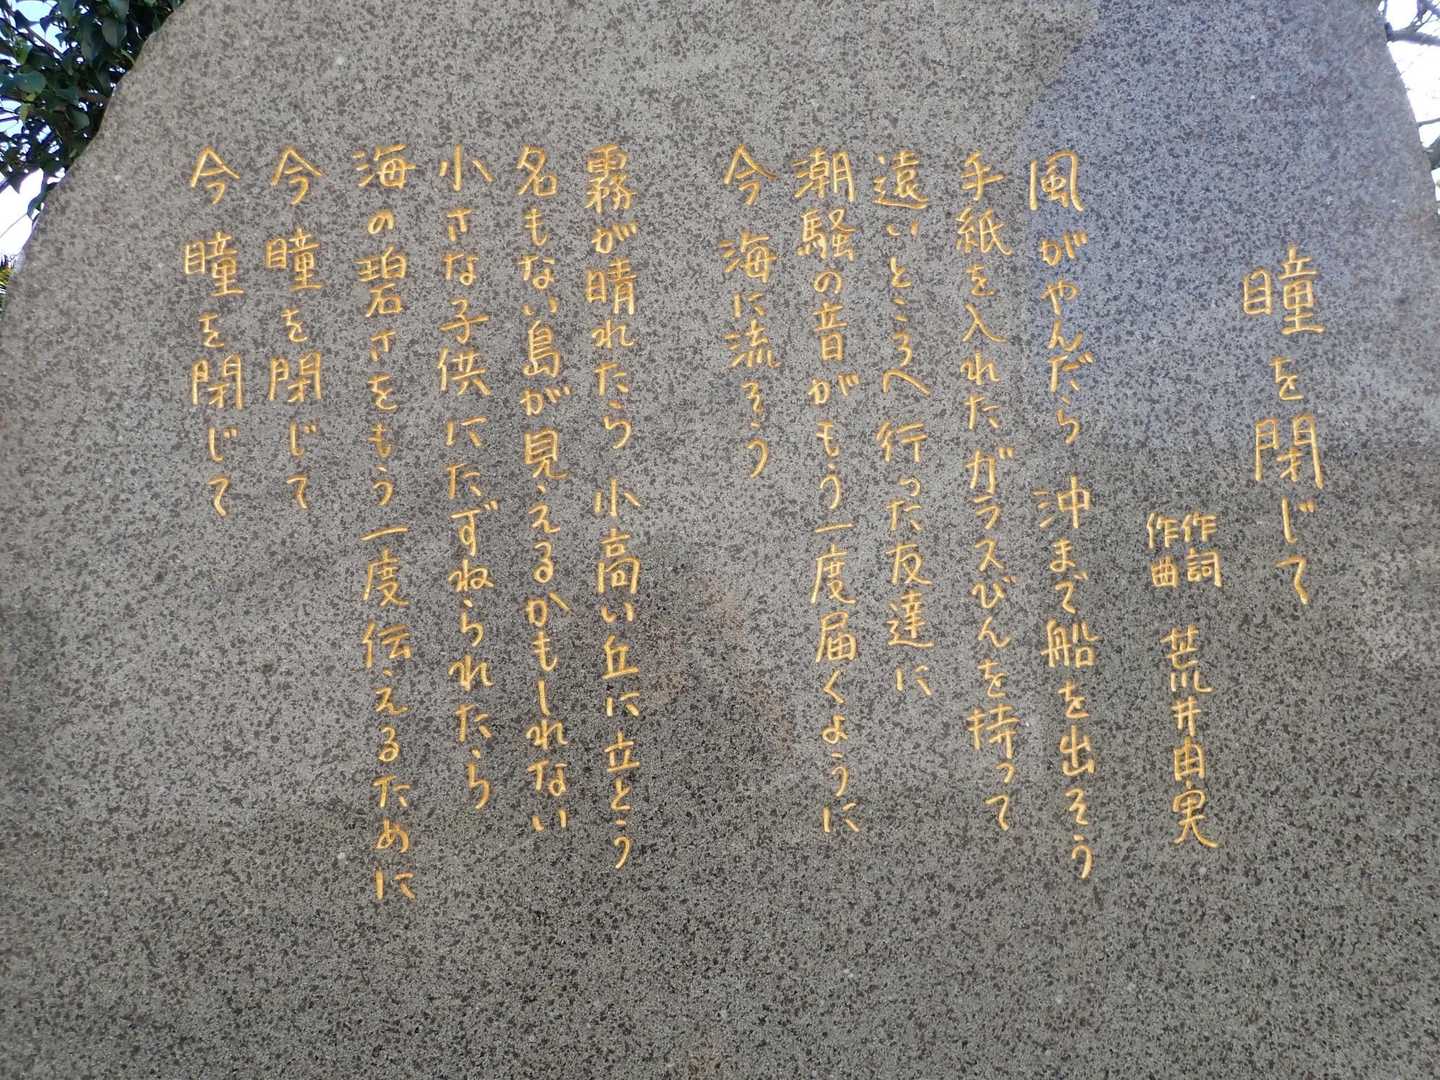 瞳を閉じて
作詞
作曲
荒井由実
風がやんだら 沖まで船を出そう
手紙を入れたガラスびんを持って
遠いところへ行った友達に
潮騒の音がもう一度届くように
今 海に流そう
霧が晴れたら 小高い丘に立とう
名もない島が見えるかもしれない
小さな子供にたずねられたら
海の碧さをもう一度伝えるために
今 瞳を閉じて
今 瞳を閉じて